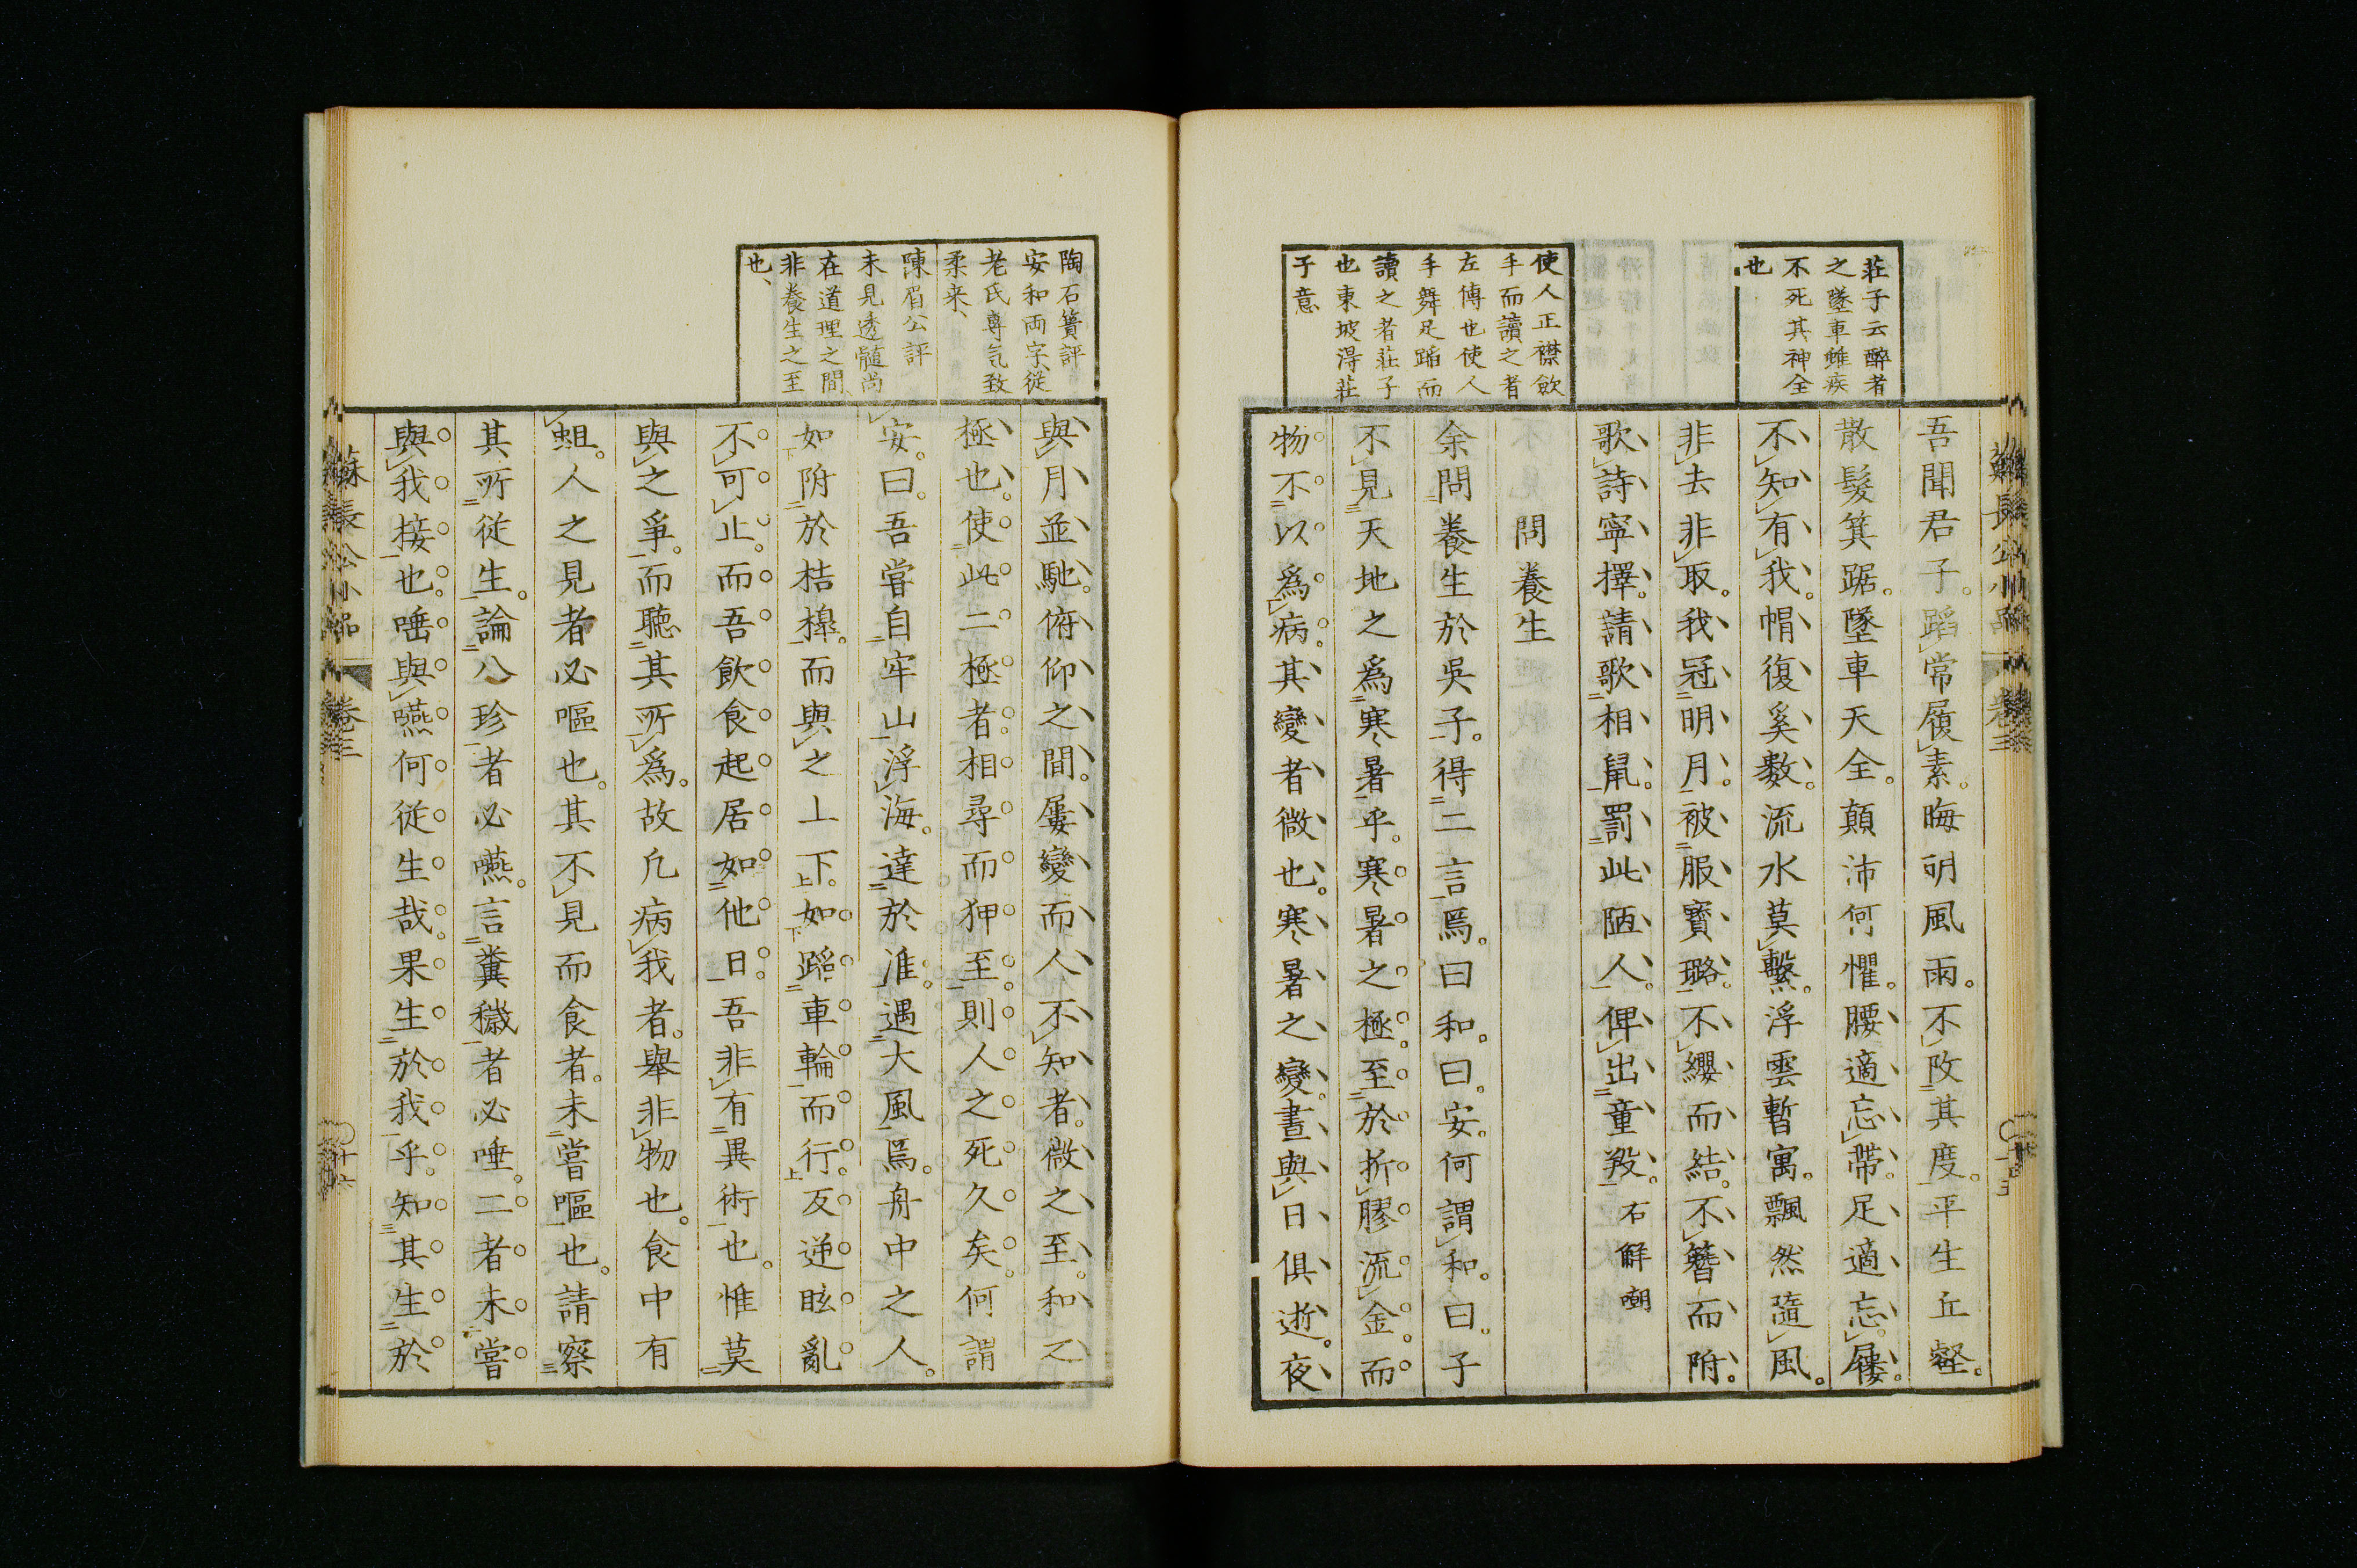 莊子云醉者
之墜車雖疾
不死其神全
也
使人正襟斂
手而讀之者
左傳也使人
手舞足蹈而
讀之者莊子
也東坡淂莊
子意
吾聞君子。蹈常履素。晦明風雨。不改其度。平生丘壑。
散髮箕踞。墜車天全。顛沛何懼。腰適忘帶。足適忘履。
不知有我。帽復奚數。流水莫繫。浮雲暫寓。飄然隨風。
非去非取。我冠明月。被服寶璐。不纓而結。不簪而附。
歌詩寧擇。請歌相鼠。罰此陋人。俾出童羖。石解嘲
問養生
余問養生於吳子。得二言焉。曰和。曰安。何謂和。曰。子
不見天地之為寒暑乎。寒暑之極。至於折膠流金。而
物不以為病。其變者微也。寒暑之變。晝與日俱逝。夜
陶石簣評
安和両字、從
老氏專気致
柔来、
陳眉公評
未見透髓尚
在道理之間、
非養生之至
也、
與月並馳。俯仰之間。屢變而人不知者。微之至。和之
極也。使此二極者。相尋而狎至。則人之死久矣。何謂
安。曰。吾嘗自牢山浮海。達於淮。遇大風焉。舟中之人。
如附於桔槹。而與之上下。如蹈車輪而行。反逆眩亂
不可止。而吾飲食起居如他日。吾非有異術也。惟莫
與之爭。而聽其所為。故凢病我者。舉非物也。食中有
蛆。人之見者必嘔也。其不見而食者。未嘗嘔也。請察
其所従生。論八珍者必嚥。言糞穢者必唾。二者未嘗
與我接也。唾與嚥何従生哉。果生於我乎。知其生於
蘇長公小品
卷三